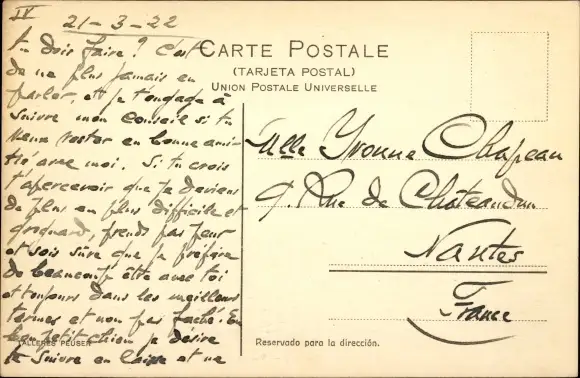 IV
21-3-22
tu dois faire? C'est
de ne plus jamais en
parler, et je t'engage à
suivre mon conseil si tu
veux rester en bonne ami-
tié avec moi. Si tu crois
t'apercevoir que je deviens
de plus en plus difficile et
grognard, prends pas peur
et sois sûre que je préfère
de beaucoup être avec toi
et toujours dans les meilleurs
termes et non pas faché. En
bon petit chien je désire
te suivre en laisse et ne
TALLERES PEUSER
CARTE POSTALE
(TARJETA POSTAL)
UNION POSTALE UNIVERSELLE
Mlle Yvonne Chapeau
9. Rue de Châteaudun
Nantes
France
Reservado para la dirección.